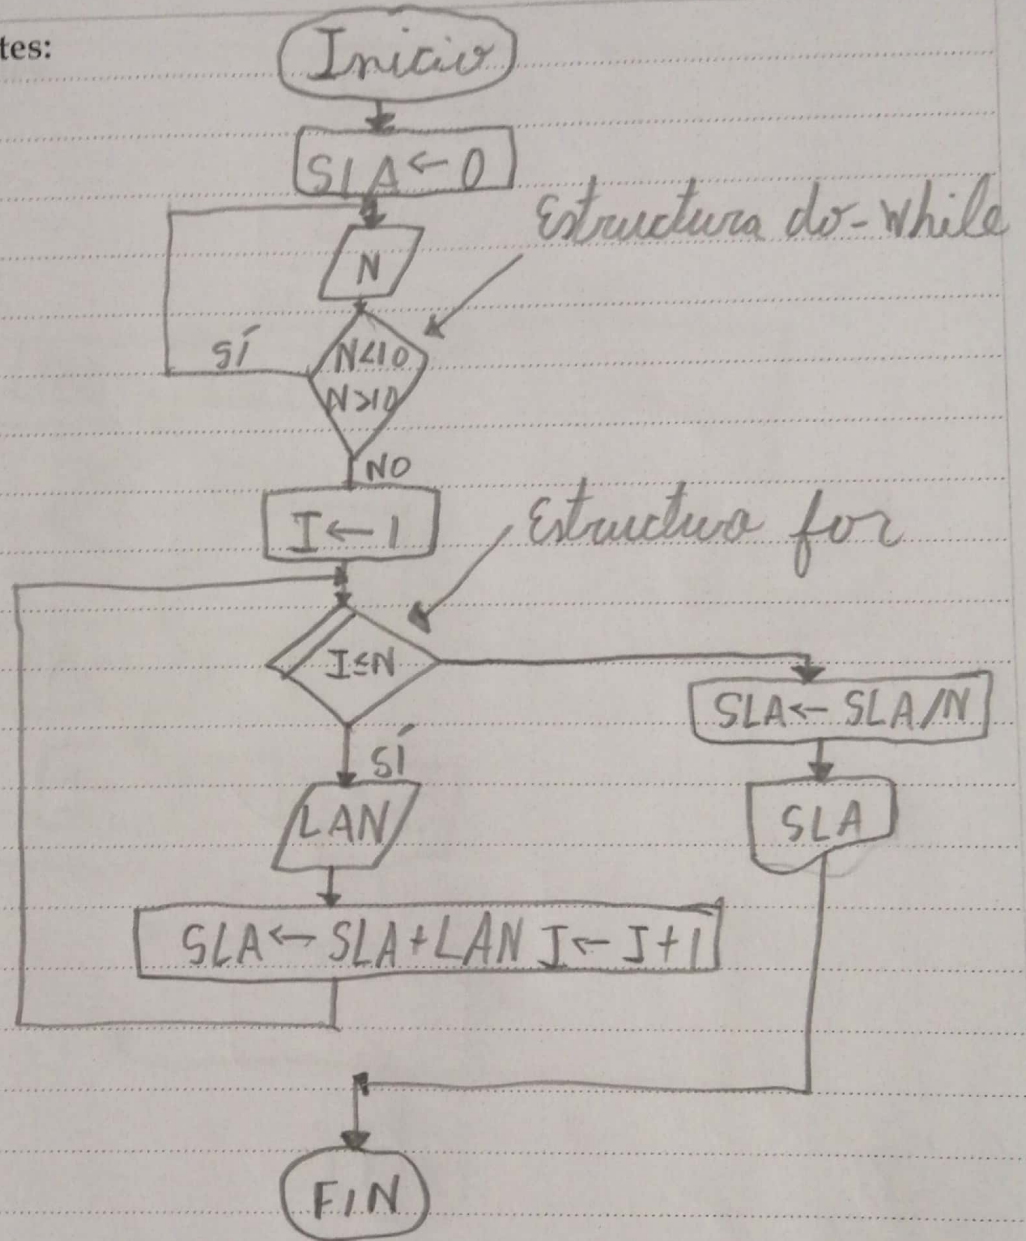 tes:
Inicio
SLA ← 0
Estructura do-while
N
SÍ
N<10
N>10
NO
I ← 1
Estructura for
I≤N
SLA ← SLA/N
SÍ
LAN
SLA
SLA ← SLA+LAN I ← I+1
FIN